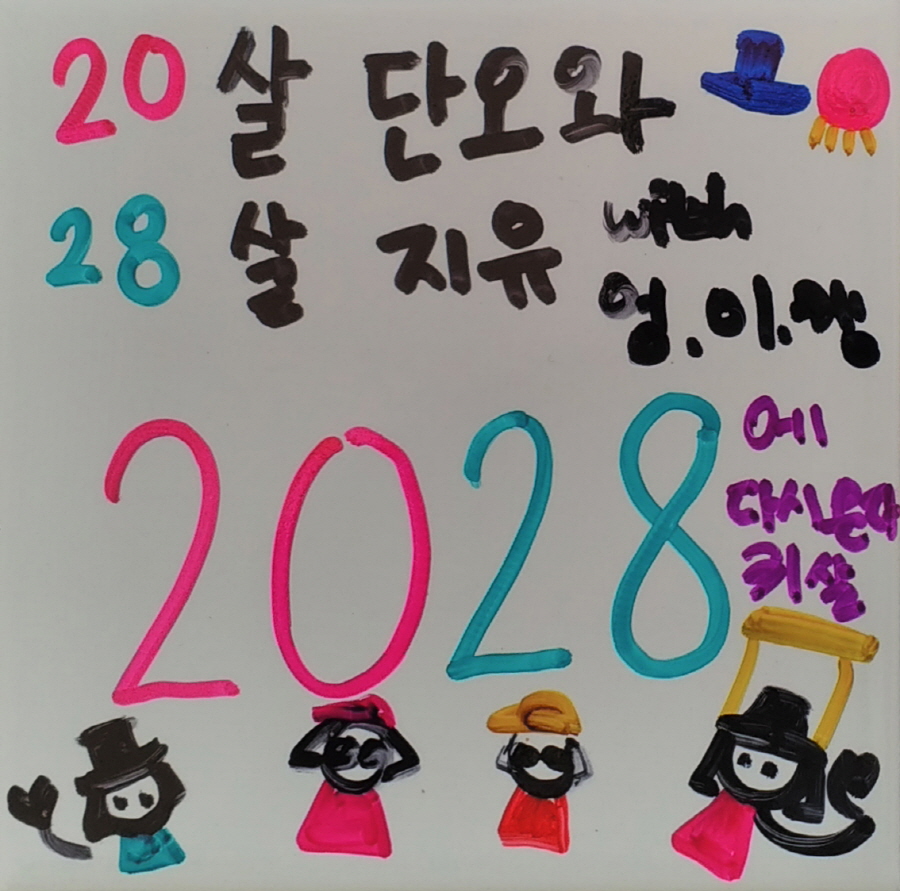 20살 단오와
28살 지유 with
엉.이.짱
2028에
다시온다
키살